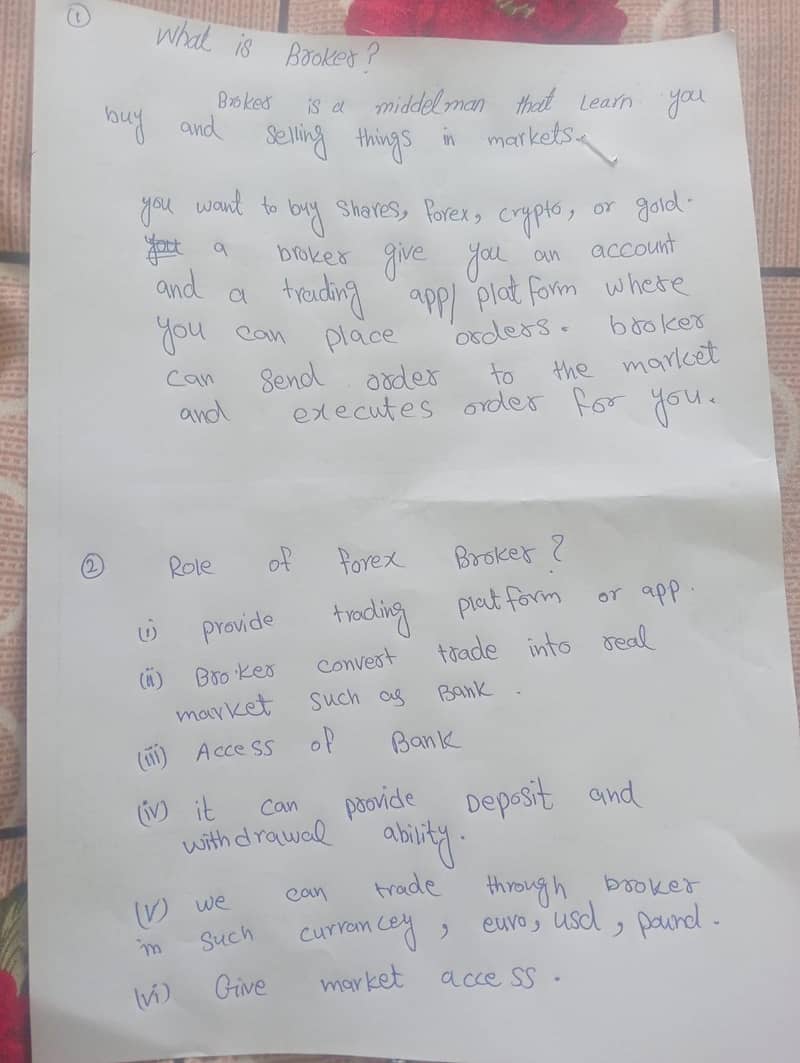 ① What is Broker?
Broker is a middelman that Learn you
buy and selling things in markets.
you want to buy shares, forex, crypto, or gold.
a broker give you an account
and a trading app/ platform where
you can place orders. broker
can send order to the market
and executes order for you.
② Role of forex Broker?
(i) provide trading platform or app.
(ii) Broker convert trade into real
market such as Bank.
(iii) Access of Bank
(iv) it can provide Deposit and
withdrawal ability.
(v) we can trade through broker
in such currancey, euro, usd, pound.
(vi) Give market access.